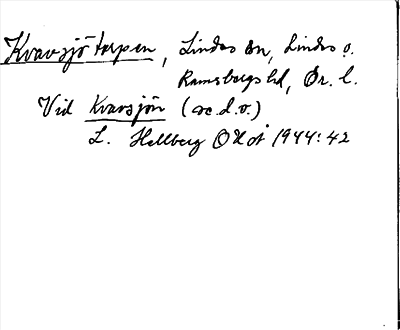 Kvavsjötorpen, Lindes sn, Lindes o.
Ramsbergs hd, Ör. l.
Vid Kvavsjön (se d.o.)
L. Hellberg 1944: 42